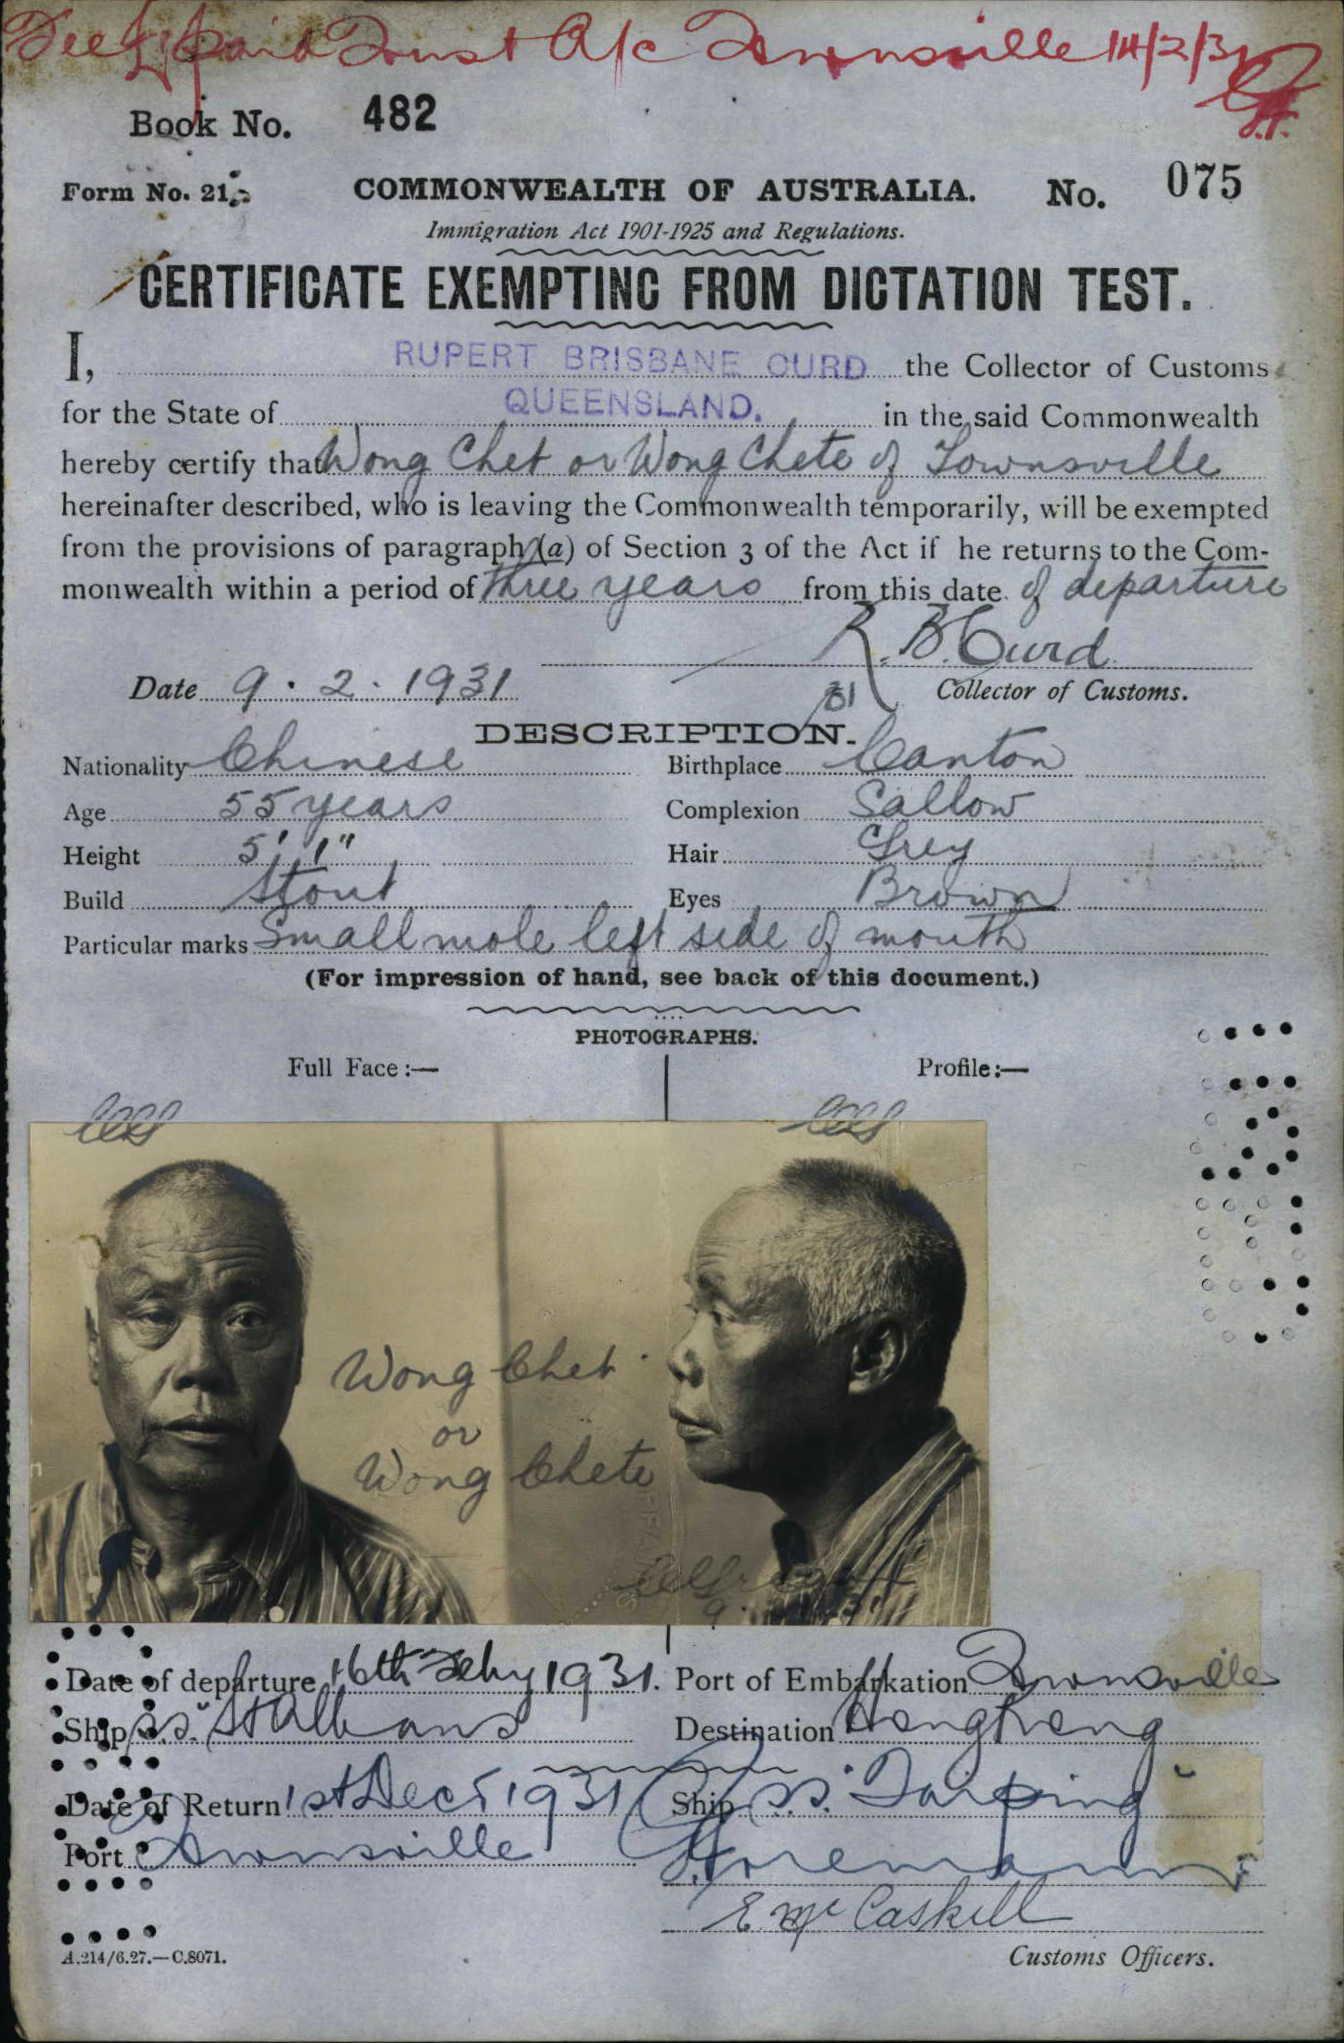 Fee £1 paid Trust A/c Townsville 14/2/31
Book No. 482
Form No. 21.
COMMONWEALTH OF AUSTRALIA. No. 075
Immigration Act 1901-1925 and Regulations.
CERTIFICATE EXEMPTING FROM DICTATION TEST.
I, RUPERT BRISBANE CURD the Collector of Customs
for the State of QUEENSLAND. in the said Commonwealth
hereby certify that Wong Chet or Wong Chete of Townsville
hereinafter described, who is leaving the Commonwealth temporarily, will be exempted
from the provisions of paragraph (a) of Section 3 of the Act if he returns to the Com-
monwealth within a period of three years from this date of departure
R. B. Curd
Date 9.2.1931 Collector of Customs.
31
DESCRIPTION.
Nationality Chinese Birthplace Canton
Age 55 years Complexion Sallow
Height 5' 1" Hair Grey
Build Stout Eyes Brown
Particular marks Small mole left side of mouth
(For impression of hand, see back of this document.)
PHOTOGRAPHS.
Full Face:— Profile:—
Wong Chet
or
Wong Chete
Date of departure 16th Feby 1931. Port of Embarkation Townsville
Ship s.s. "St Albans Destination Hongkong
Date of Return 1st Decr 1931 Ship s.s. Taiping"
Port Townsville
E McCaskill
A.214/6.27.—C.8071.
Customs Officers.